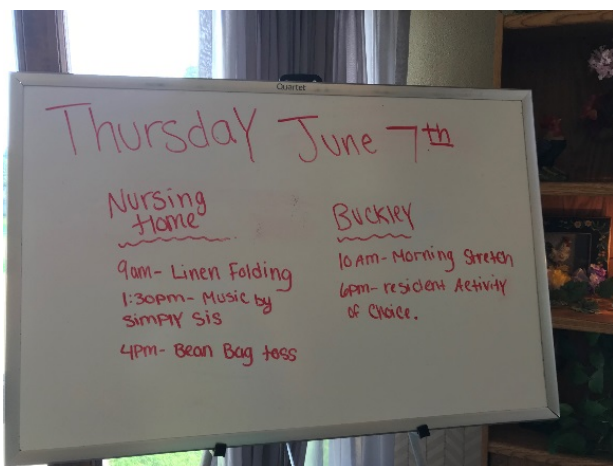 Quartet
Thursday June 7th
Nursing
Home
9am- Linen Folding
1:30pm- Music by
Simply Sis
4pm- Bean Bag toss
Buckley
10 Am- Morning Stretch
6pm- resident Activity
of Choice.